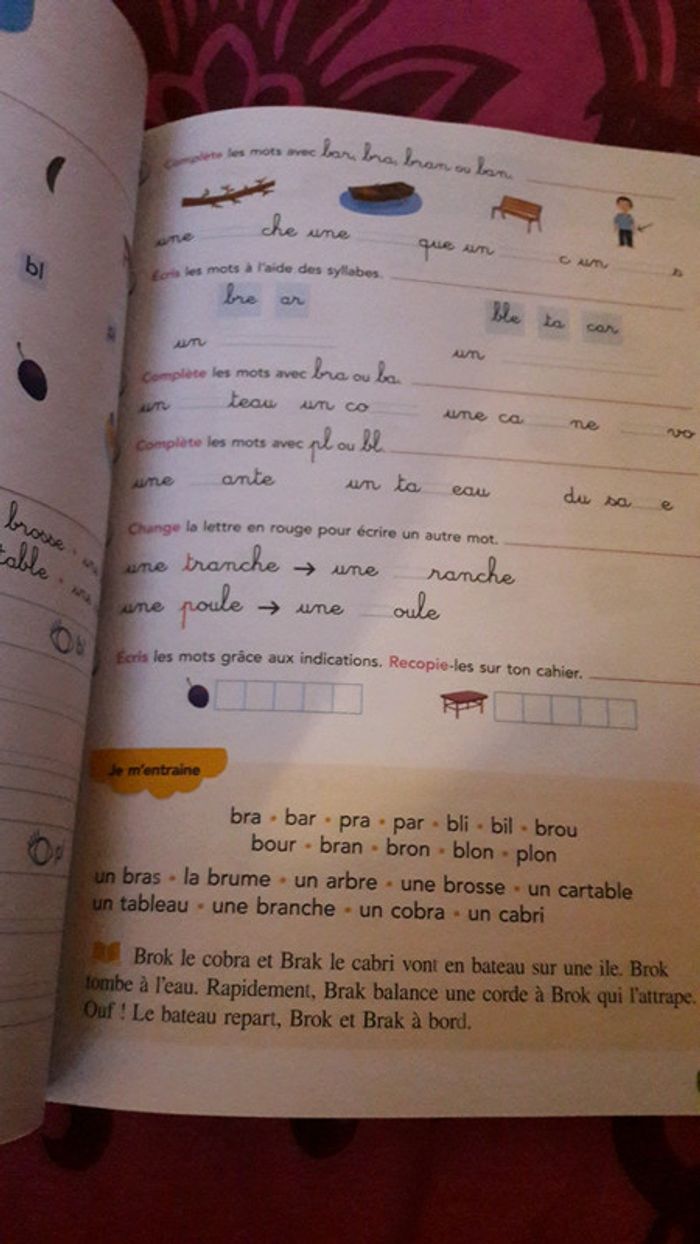 bl
brosse • un
table • une
bl
pl
Complète les mots avec bar, bra, bran ou ban.
une che une que un c un s
Écris les mots à l'aide des syllabes.
bre ar ble ta car
un un
Complète les mots avec bra ou ba.
un teau un co une ca ne vo
Complète les mots avec pl ou bl.
une ante un ta eau du sa e
Change la lettre en rouge pour écrire un autre mot.
une tranche → une ranche
une poule → une oule
Écris les mots grâce aux indications. Recopie-les sur ton cahier.
Je m'entraine
bra • bar • pra • par • bli • bil • brou
bour • bran • bron • blon • plon
un bras • la brume • un arbre • une brosse • un cartable
un tableau • une branche • un cobra • un cabri
Brok le cobra et Brak le cabri vont en bateau sur une ile. Brok
tombe à l'eau. Rapidement, Brak balance une corde à Brok qui l'attrape.
Ouf ! Le bateau repart, Brok et Brak à bord.